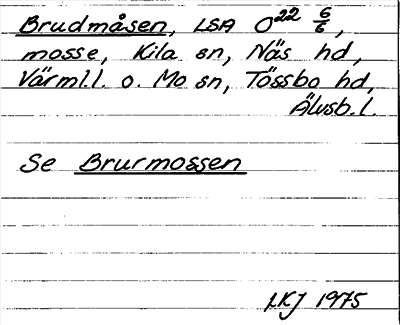 Brudmåsen, LSA O²² 6/6,
mosse, Kila sn, Näs hd,
Värml.l. o. Mo sn, Tössbo hd,
Älvsb.l.
Se Brurmossen
LKJ 1975